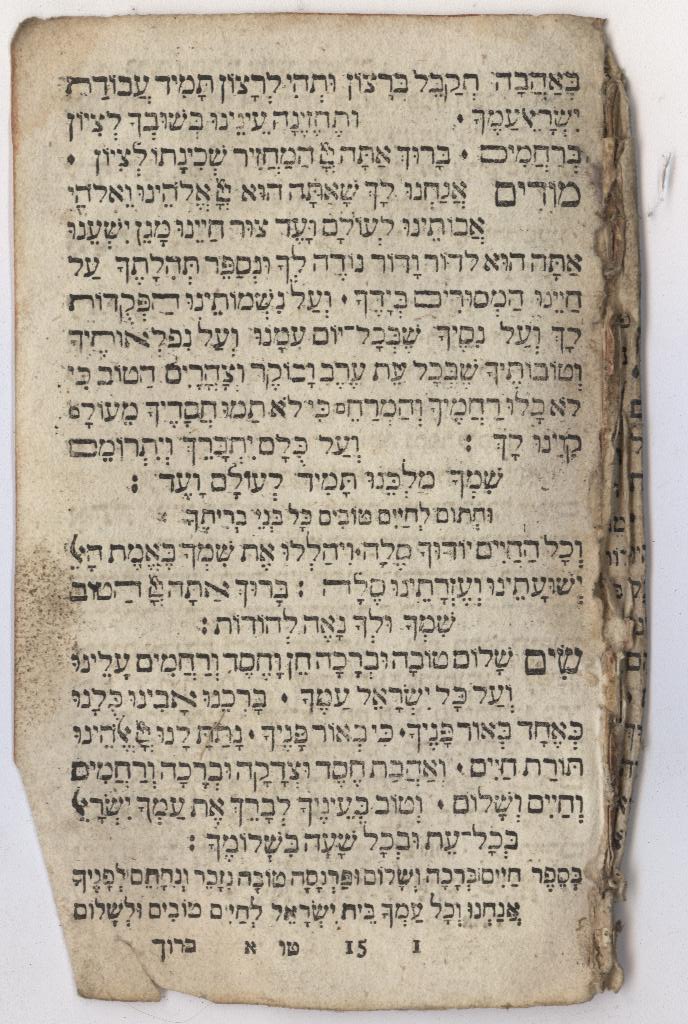 בְּאַהֲבָה תְקַבֵּל בְּרָצוֹן וּתְהִי לְרָצוֹן תָּמִיד עֲבוֹדַת
יִשְׂרָאֵ עַמֶּךָ · וְתֶחֱזֶינָה עֵינֵינוּ בְּשׁוּבְךָ לְצִיּוֹן
בְּרַחֲמִים · בָּרוּךְ אַתָּה יְיָ הַמַּחֲזִיר שְׁכִינָתוֹ לְצִיּוֹן ·
מוֹדִים אֲנַחְנוּ לָךְ שָׁאַתָּה הוּא יְיָ אֱלֹהֵינוּ וֵאלֹהֵי
אֲבוֹתֵינוּ לְעוֹלָם וָעֶד צוּר חַיֵּינוּ מָגֵן יִשְׁעֵנוּ
אַתָּה הוּא לְדוֹר וָדוֹר נוֹדֶה לְךָ וּנְסַפֵּר תְּהִלָּתֶךָ עַל
חַיֵּינוּ הַמְּסוּרִים בְּיָדֶךָ · וְעַל נִשְׁמוֹתֵינוּ הַפְּקֻדוֹת
לָךְ וְעַל נִסֶּיךָ שֶׁבְּכָל־יוֹם עִמָּנוּ וְעַל נִפְלְאוֹתֶיךָ
וְטוֹבוֹתֶיךָ שֶׁבְּכָל עֵת עֶרֶב וָבוֹקֶר וְצָהֳרָיִם הַטּוֹב כִּי
לֹא כָלוּ רַחֲמֶיךָ וְהַמְרַחֵם כִּי לֹא תַמּוּ חֲסָדֶיךָ מֵעוֹלָם
קִוִּינוּ לָךְ : וְעַל כֻּלָּם יִתְבָּרֵךְ וְיִתְרוֹמֵם
שִׁמְךָ מַלְכֵּנוּ תָּמִיד לְעוֹלָם וָעֶד :
וַחֲתוֹם לְחַיִּים טוֹבִים כָּל בְּנֵי בְרִיתֶךָ
וְכָל הַחַיִּים יוֹדוּךָ סֶּלָה וִיהַלְלוּ אֶת שִׁמְךָ בֶּאֱמֶת הָאֵל
יְשׁוּעָתֵינוּ וְעֶזְרָתֵינוּ סֶלָה : בָּרוּךְ אַתָּה יְיָ הַטּוֹב
שִׁמְךָ וּלְךָ נָאֶה לְהוֹדוֹת :
שִׂים שָׁלוֹם טוֹבָה וּבְרָכָה חֵן וָחֶסֶד וְרַחֲמִים עָלֵינוּ
וְעַל כָּל יִשְׂרָאֵל עַמֶּךָ · בָּרְכֵנוּ אָבִינוּ כֻּלָּנוּ
כְּאֶחָד בְּאוֹר פָּנֶיךָ · כִּי בְאוֹר פָּנֶיךָ · נָתַתָּ לָנוּ יְיָ אֱלֹהֵינוּ
תּוֹרַת חַיִּים · וְאַהֲבַת חֶסֶד וּצְדָקָה וּבְרָכָה וְרַחֲמִים
וְחַיִּים וְשָׁלוֹם · וְטוֹב בְּעֵינֶיךָ לְבָרֵךְ אֶת עַמְּךָ יִשְׂרָאֵל
בְּכָל־עֵת וּבְכָל שָׁעָה בִּשְׁלוֹמֶךָ :
בְּסֵפֶר חַיִּים בְּרָכָה וְשָׁלוֹם וּפַרְנָסָה טוֹבָה נִזָּכֵר וְנֵחָתֵם לְפָנֶיךָ
אֲנַחְנוּ וְכָל עַמְּךָ בֵּית יִשְׂרָאֵל לְחַיִּים טוֹבִים וּלְשָׁלוֹם
ברוך א טו 15 1